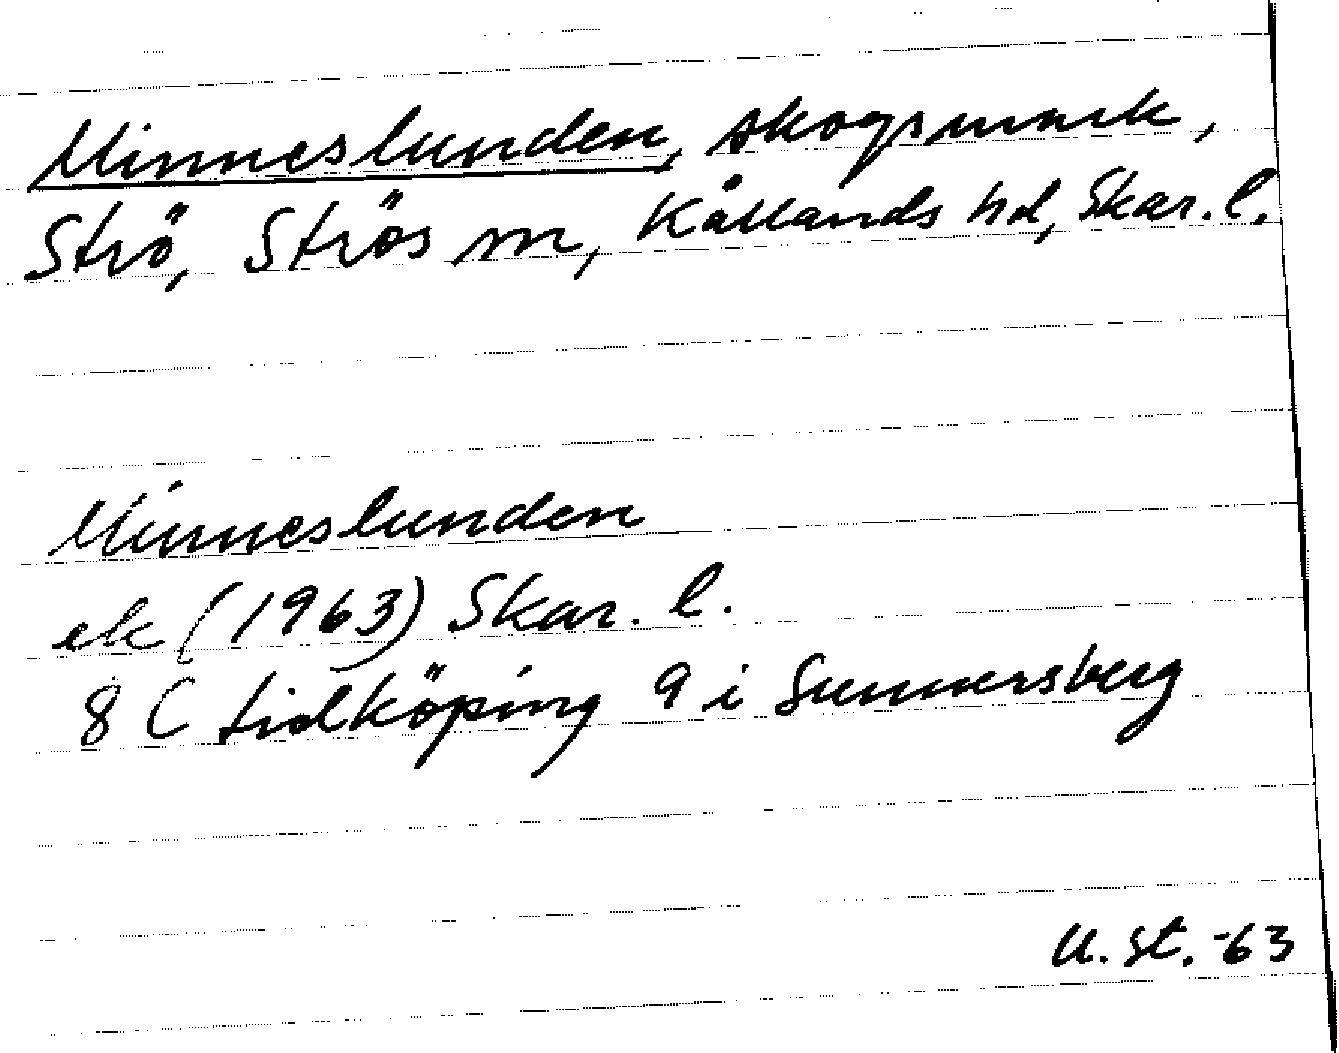 Minneslunden, skogsmark,
Strö, Strös sn, Kållands hd, Skar. l.
Minneslunden
ek (1963) Skar. l.
8 C Lidköping 9 i Sunnersberg
U. St. -63